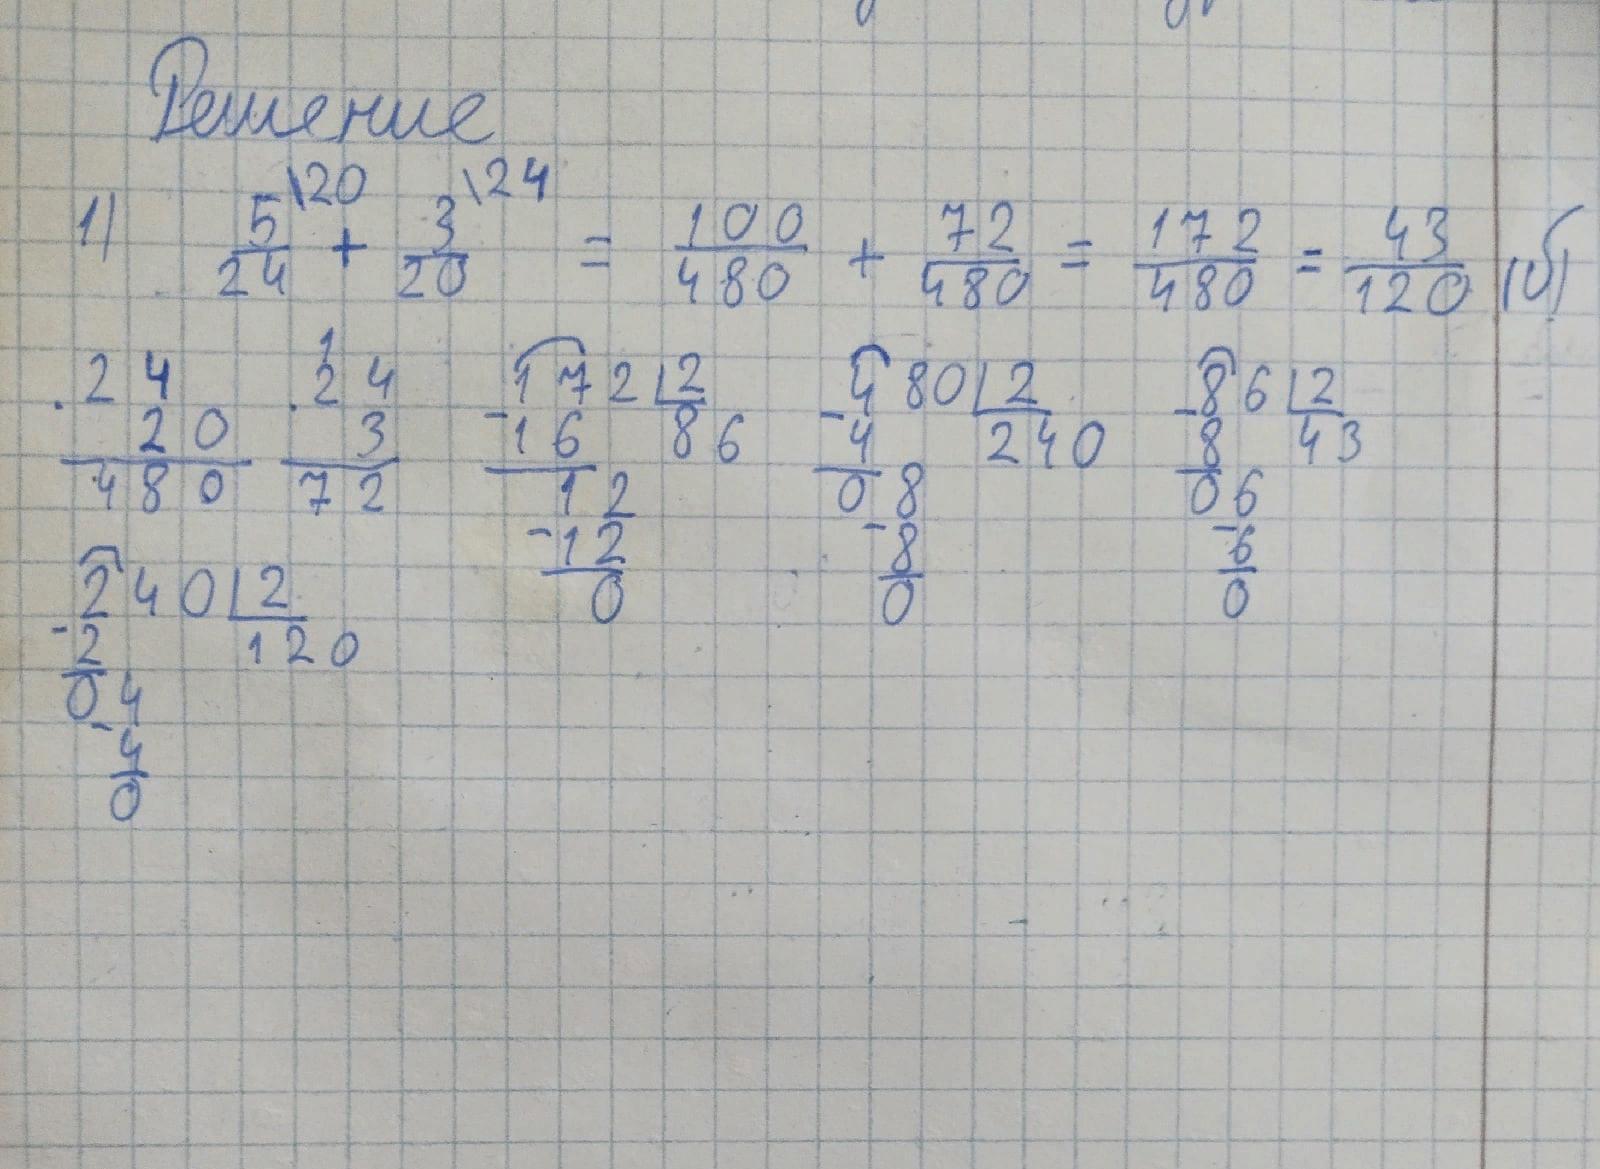 Решение
1) 5/24 \20 + 3/20 \24 = 100/480 + 72/480 = 172/480 = 43/120 (б)
24 · 20 = 480
24 · 3 = 72
172 | 2
-16 86
12
-12
0
480 | 2
-4 240
08
-8
0
86 | 2
-8 43
06
-6
0
240 | 2
-2 120
04
-4
0